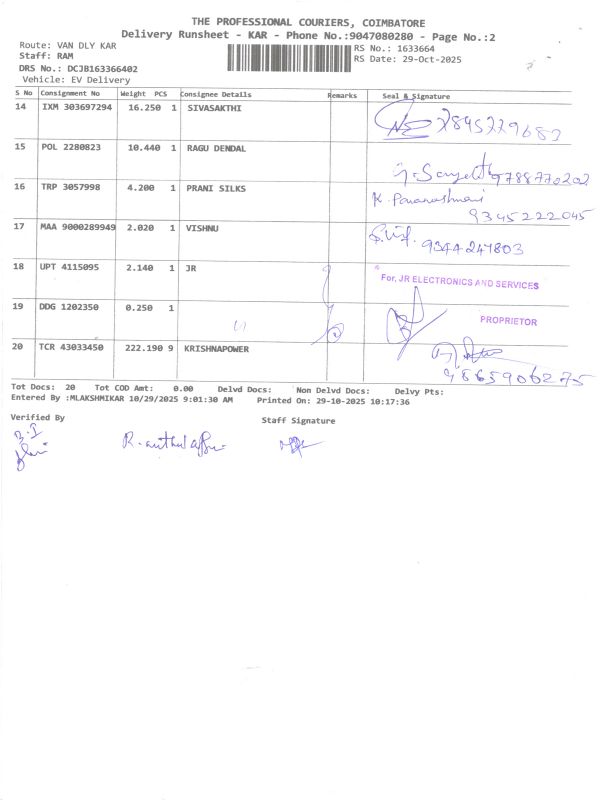 THE PROFESSIONAL COURIERS, COIMBATORE
Delivery Runsheet - KAR - Phone No.:9047080280 - Page No.:2
Route: VAN DLY KAR
RS No.: 1633664
Staff: RAM
RS Date: 29-Oct-2025
DRS No.: DCJB163366402
Vehicle: EV Delivery
S No Consignment No Weight PCS Consignee Details Remarks Seal & Signature
14 IXM 303697294 16.250 1 SIVASAKTHI
7845229683
15 POL 2280823 10.440 1 RAGU DENDAL
9788770202
16 TRP 3057998 4.200 1 PRANI SILKS
9345222045
17 MAA 9000289949 2.020 1 VISHNU
9344247803
18 UPT 4115095 2.140 1 JR
For, JR ELECTRONICS AND SERVICES
19 DDG 1202350 0.250 1
PROPRIETOR
20 TCR 43033450 222.190 9 KRISHNAPOWER
9865906275
Tot Docs: 20 Tot COD Amt: 0.00 Delvd Docs: Non Delvd Docs: Delvy Pts:
Entered By :MLAKSHMIKAR 10/29/2025 9:01:30 AM Printed On: 29-10-2025 10:17:36
Verified By
Staff Signature